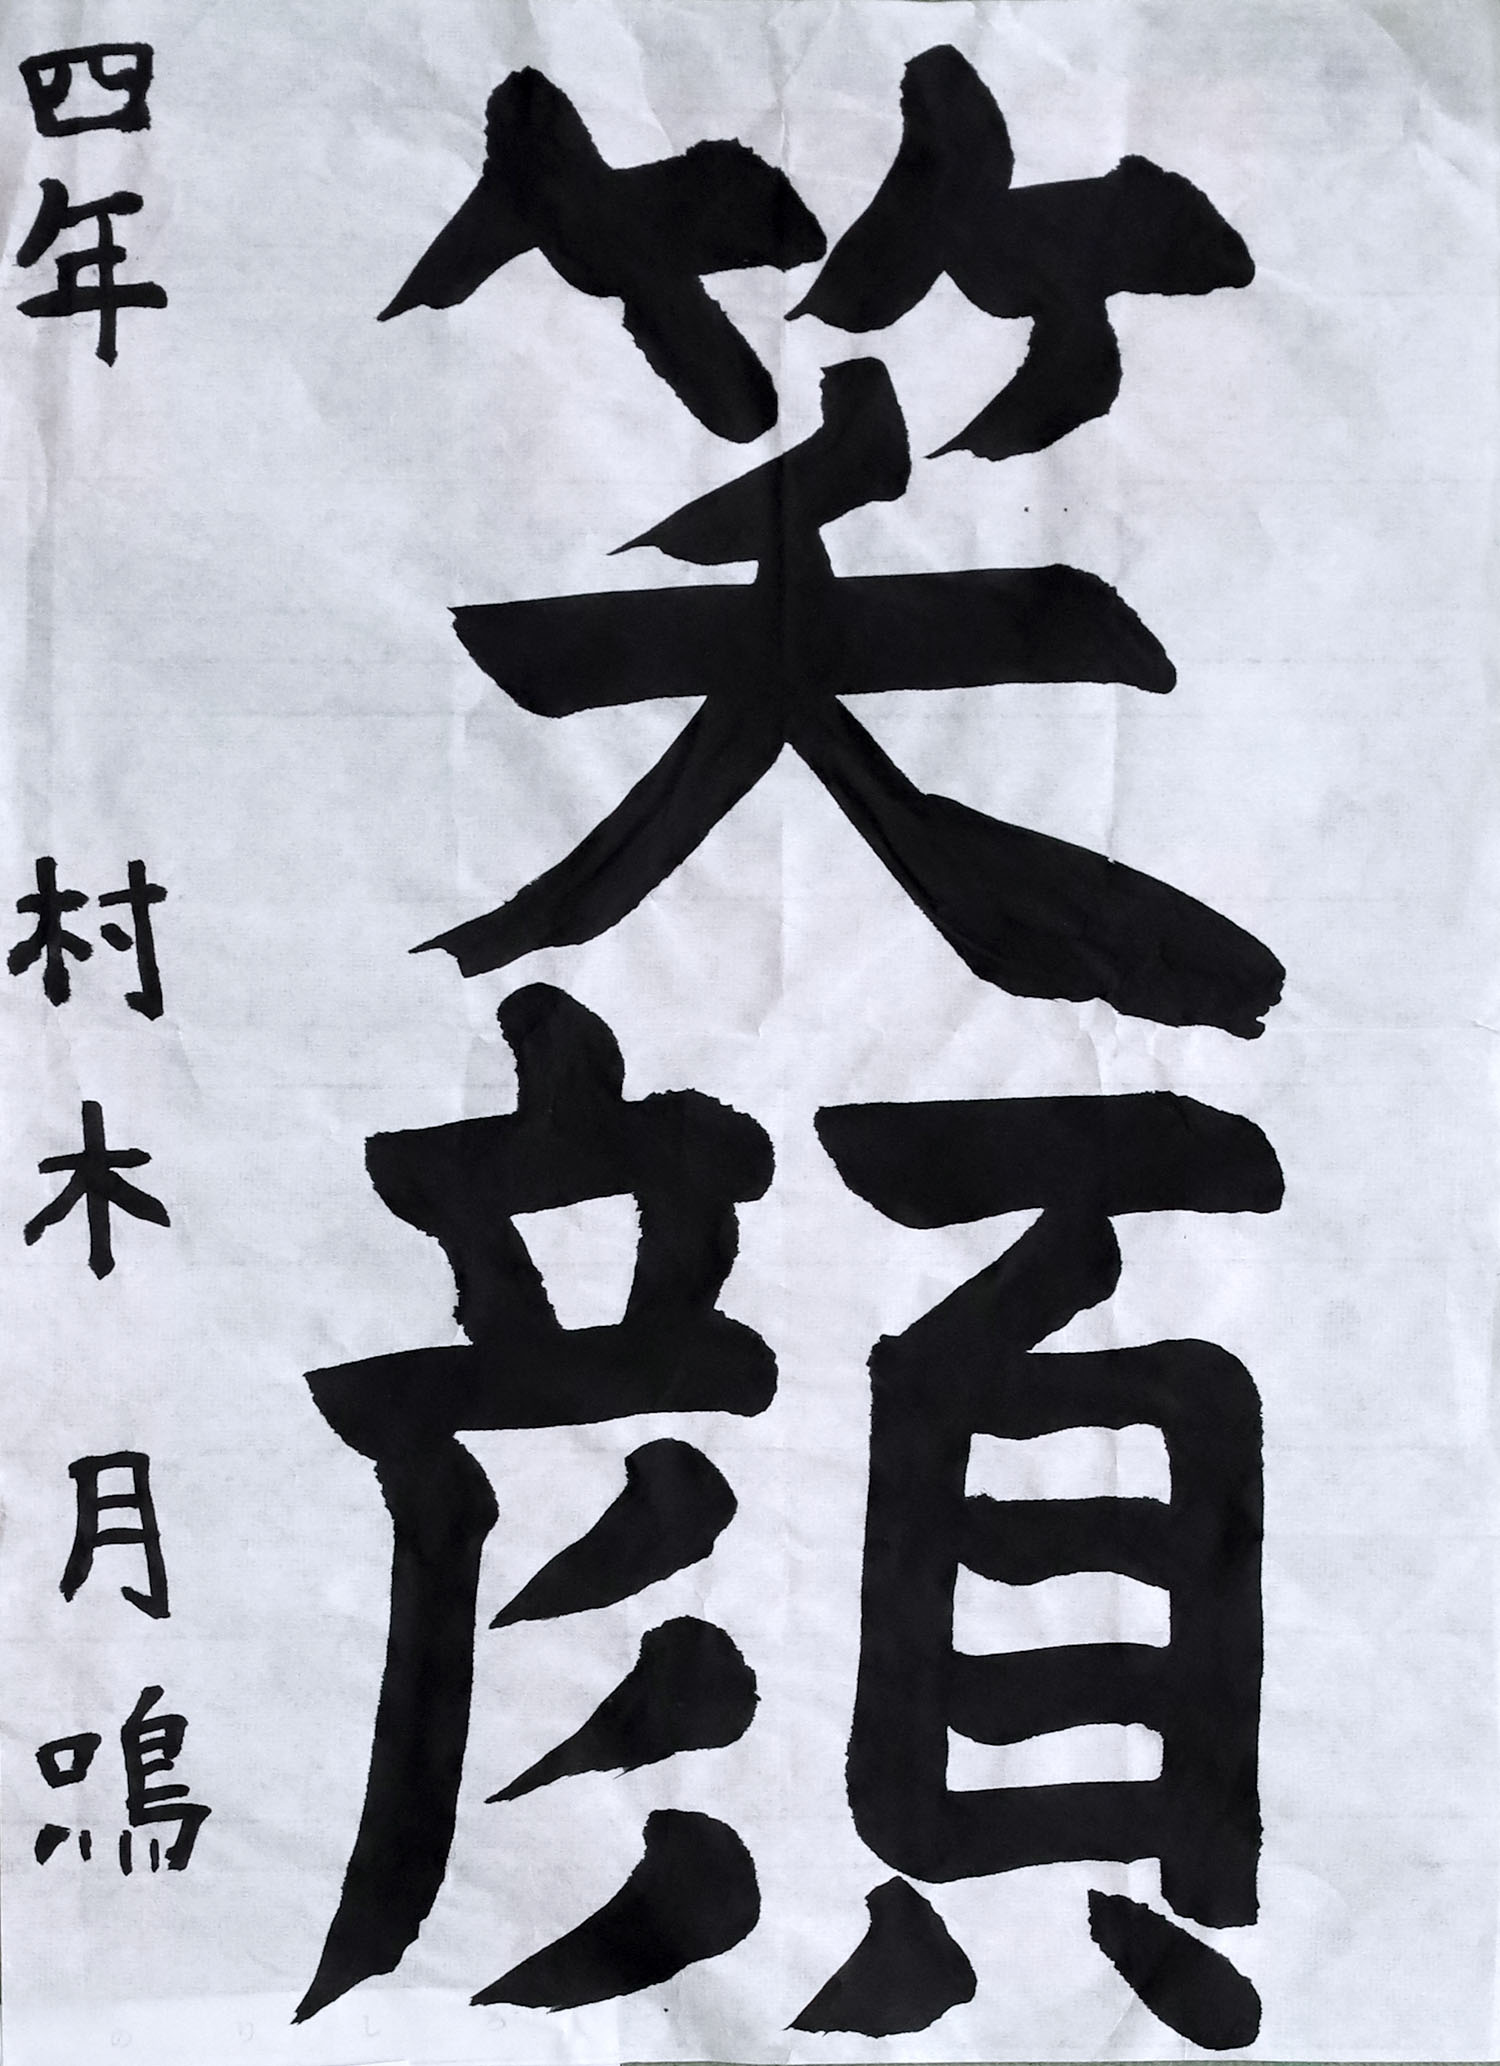 笑顔
四年 村木月鳴